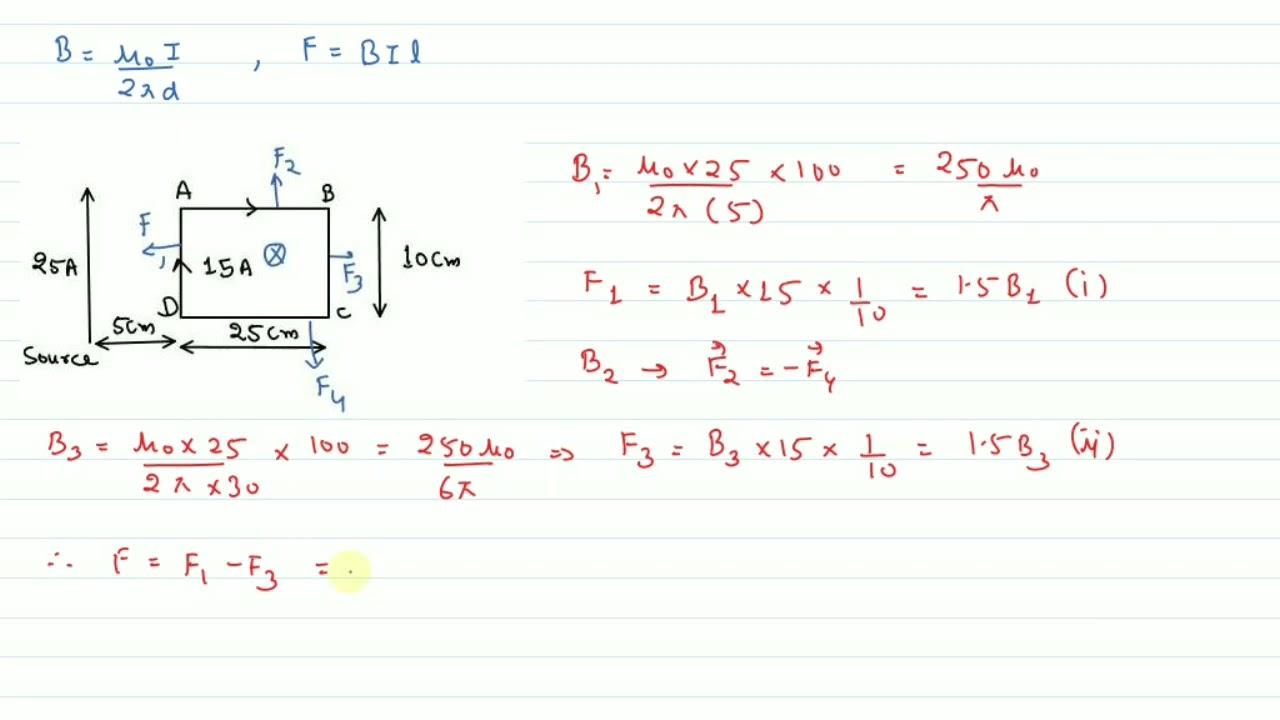 B = μ₀ I / 2πd , F = B I l
F₂
A B
F₁
25A 15A ⊗ F₃ 10cm
D C
5cm 25cm
Source
F₄
B₁ = μ₀ × 25 / 2π (5) × 100 = 250 μ₀ / π
F₁ = B₁ × 15 × 1/10 = 1.5 B₁ (i)
B₂ → F⃗₂ = - F⃗₄
B₃ = μ₀ × 25 / 2π × 30 × 100 = 250 μ₀ / 6π ⇒ F₃ = B₃ × 15 × 1/10 = 1.5 B₃ (ii)
∴ F = F₁ - F₃ =